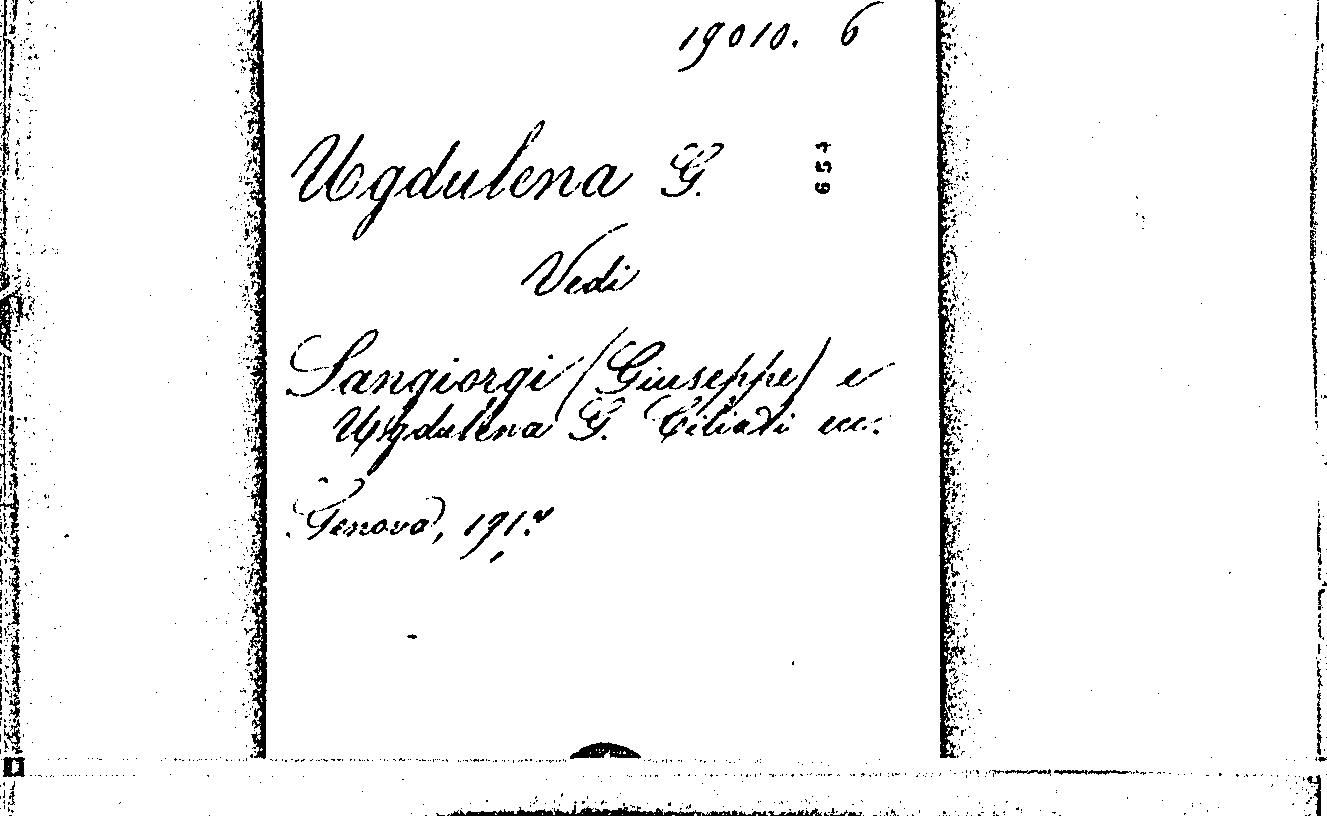 19010. 6
Ugdulena G.
654
Vedi
Sangiorgi (Giuseppe) e
Ugdulena G. Ciliati ecc.
Genova,